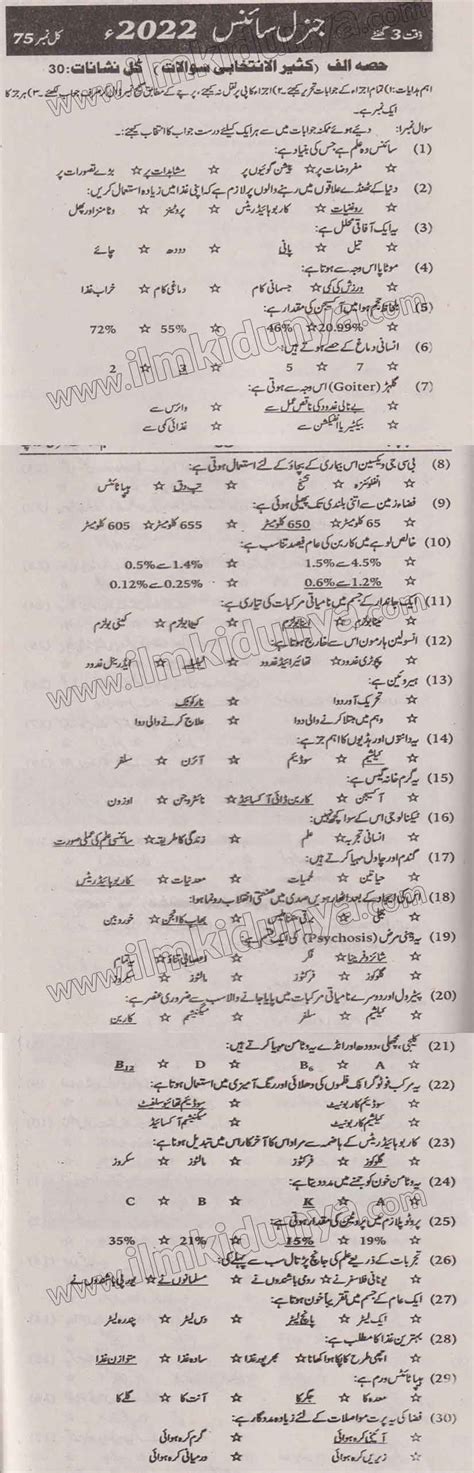 وقت 3 گھنٹے جنرل سائنس 2022ء کل نمبر 75
حصہ الف (کثیر الانتخابی سوالات) کل نشانات: 30
ایک نمبر ہے۔
سوال نمبر ۱: دیے ہوئے ممکنہ جوابات میں سے ہر ایک کیلئے درست جواب کا انتخاب کیجئے۔
(1) سائنس وہ علم ہے جس کی بنیاد ہے:
☆ مفروضات پر ☆ پیشن گوئیوں پر ☆ مشاہدات پر ☆ بڑے تصورات پر
(2) دنیا کے ٹھنڈے علاقوں میں رہنے والوں پر لازم ہے کہ اپنی غذا میں زیادہ استعمال کریں:
☆ روغنیات ☆ کاربوہائیڈریٹس ☆ پروٹینز ☆ وٹامنز اور پھل
(3) یہ ایک آفاقی محلل ہے:
☆ تیل ☆ پانی ☆ دودھ ☆ چائے
(4) موٹاپا اس وجہ سے ہوتا ہے:
☆ ورزش کی کمی ☆ جسمانی کام ☆ دماغی کام ☆ خراب غذا
(5) بلحاظ حجم ہوا میں آکسیجن کی مقدار ہے:
☆ 20.99% ☆ 46% ☆ 55% ☆ 72%
(6) انسانی دماغ کے حصے ہوتے ہیں:
☆ 7 ☆ 5 ☆ 3 ☆ 2
(7) گلہڑ (Goiter) اس وجہ سے ہوتی ہے:
☆ بے نالی غدود کی ناقص عمل سے ☆ وائرس سے
☆ بیکٹیریا انفیکشن سے ☆ غذائی کمی سے
(8) بی سی جی ویکسین اس بیماری کے بچاؤ کے لئے استعمال ہوتی ہے:
☆ انفلوئنزہ ☆ تشنج ☆ تپ دق ☆ ہیپاٹائٹس
(9) فضاء زمین سے اتنی بلندی تک پھیلی ہوئی ہے:
☆ 65 کلومیٹر ☆ 650 کلومیٹر ☆ 655 کلومیٹر ☆ 605 کلومیٹر
(10) خالص لوہے میں کاربن کی عام فیصد تناسب ہے:
☆ 1.5% سے 4.5% ☆ 0.5% سے 1.4%
☆ 0.6% سے 1.2% ☆ 0.12% سے 0.25%
(11) ایک جاندار کے جسم میں نامیاتی مرکبات کی تیاری ہے:
☆ میٹابولزم ☆ اینابولزم ☆ کیٹابولزم ☆ کینی بولزم
(12) انسولین ہارمون اس سے خارج ہوتا ہے:
☆ پچوٹری غدود ☆ تھائیرائیڈ غدود ☆ لبلبہ ☆ ایڈرینل غدود
(13) ہیروئین ہے:
☆ تحریک آور دوا ☆ نارکوٹک
☆ وہم میں مبتلا کرنے والی دوا ☆ علاج کرنے والی دوا
(14) یہ دانتوں اور ہڈیوں کا اہم جز ہے:
☆ کیلشیم ☆ سوڈیم ☆ آئرن ☆ سلفر
(15) یہ گرم خانہ گیس ہے:
☆ آکسیجن ☆ کاربن ڈائی آکسائیڈ ☆ نائٹروجن ☆ اوزون
(16) ٹیکنالوجی اس کے سوا کچھ نہیں:
☆ انسانی تجربہ ☆ علم ☆ زندگی کا طریقہ ☆ سائنسی علم کی عملی صورت
(17) گندم اور چاول مہیا کرتے ہیں:
☆ حیاتین ☆ لحمیات ☆ معدنیات ☆ کاربوہائیڈریٹس
(18) اس کی ایجاد کے بعد اٹھارہویں صدی میں صنعتی انقلاب رونما ہوا:
☆ بجلی ☆ برقی مقناطیس ☆ بھاپ کا انجن ☆ خوردبین
(19) یہ ذہنی مرض (Psychosis) کی ایک قسم ہے:
☆ شائزوفرینا ☆ فکر ☆ اعصابی تناؤ ☆ یہ تمام
☆ گلوکوز ☆ فرکٹوز ☆ مالٹوز ☆ سکروز
(20) پیٹرول اور دوسرے نامیاتی مرکبات میں پایا جانے والا سب سے ضروری عنصر ہے:
☆ کیلشیم ☆ سلفر ☆ میگنیشیم ☆ کاربن
(21) کلیجی، مچھلی، دودھ اور انڈے یہ وٹامن مہیا کرتے ہیں:
☆ A ☆ B6 ☆ D ☆ B12
(22) یہ مرکب فوٹوگرافک فلموں کی دھلائی اور رنگ آمیزی میں استعمال ہوتا ہے:
☆ سوڈیم کاربونیٹ ☆ سوڈیم تھائیوسلفیٹ
☆ کیلشیم کاربونیٹ ☆ میگنیشیم آکسائیڈ
(23) کاربوہائیڈریٹس کے ہاضمہ سے مراد اس کا آخرکار اس میں تبدیل ہونا ہے:
☆ گلوکوز ☆ فرکٹوز ☆ مالٹوز ☆ سکروز
(24) یہ وٹامن خون کو جمنے میں مدد دیتا ہے:
☆ A ☆ K ☆ B ☆ C
(25) پروٹوپلازم میں پروٹین کی مقدار ہوتی ہے:
☆ 19% ☆ 15% ☆ 21% ☆ 35%
(26) تجربات کے ذریعے علم کی جانچ پڑتال سب سے پہلے کی:
☆ یونانی فلاسفر نے ☆ رومی باشندوں نے ☆ مسلمانوں نے ☆ یورپی باشندوں نے
(27) ایک عام کے جسم میں تقریباً خون ہوتا ہے:
☆ ایک لیٹر ☆ پانچ لیٹر ☆ دس لیٹر ☆ پندرہ لیٹر
(28) بہترین غذا کا مطلب ہے:
☆ اچھی طرح کا پکا ہوا کھانا ☆ بھرپور غذا ☆ سادہ غذا ☆ متوازن غذا
(29) ہیپاٹائٹس ورم ہے:
☆ معدہ کا ☆ جگر کا ☆ آنت کا ☆ گلے کا
(30) فضا کی یہ پرت مواصلات کے لئے زیادہ مددگار ہے:
☆ آئنی کرہ ہوائی ☆ گرم کرہ ہوائی
☆ زیریں کرہ ہوائی ☆ درمیانی کرہ ہوائی
www.ilmkidunya.com
www.ilmkidunya.com
www.ilmkidunya.com
www.ilmkidunya.com
www.ilmkidunya.com